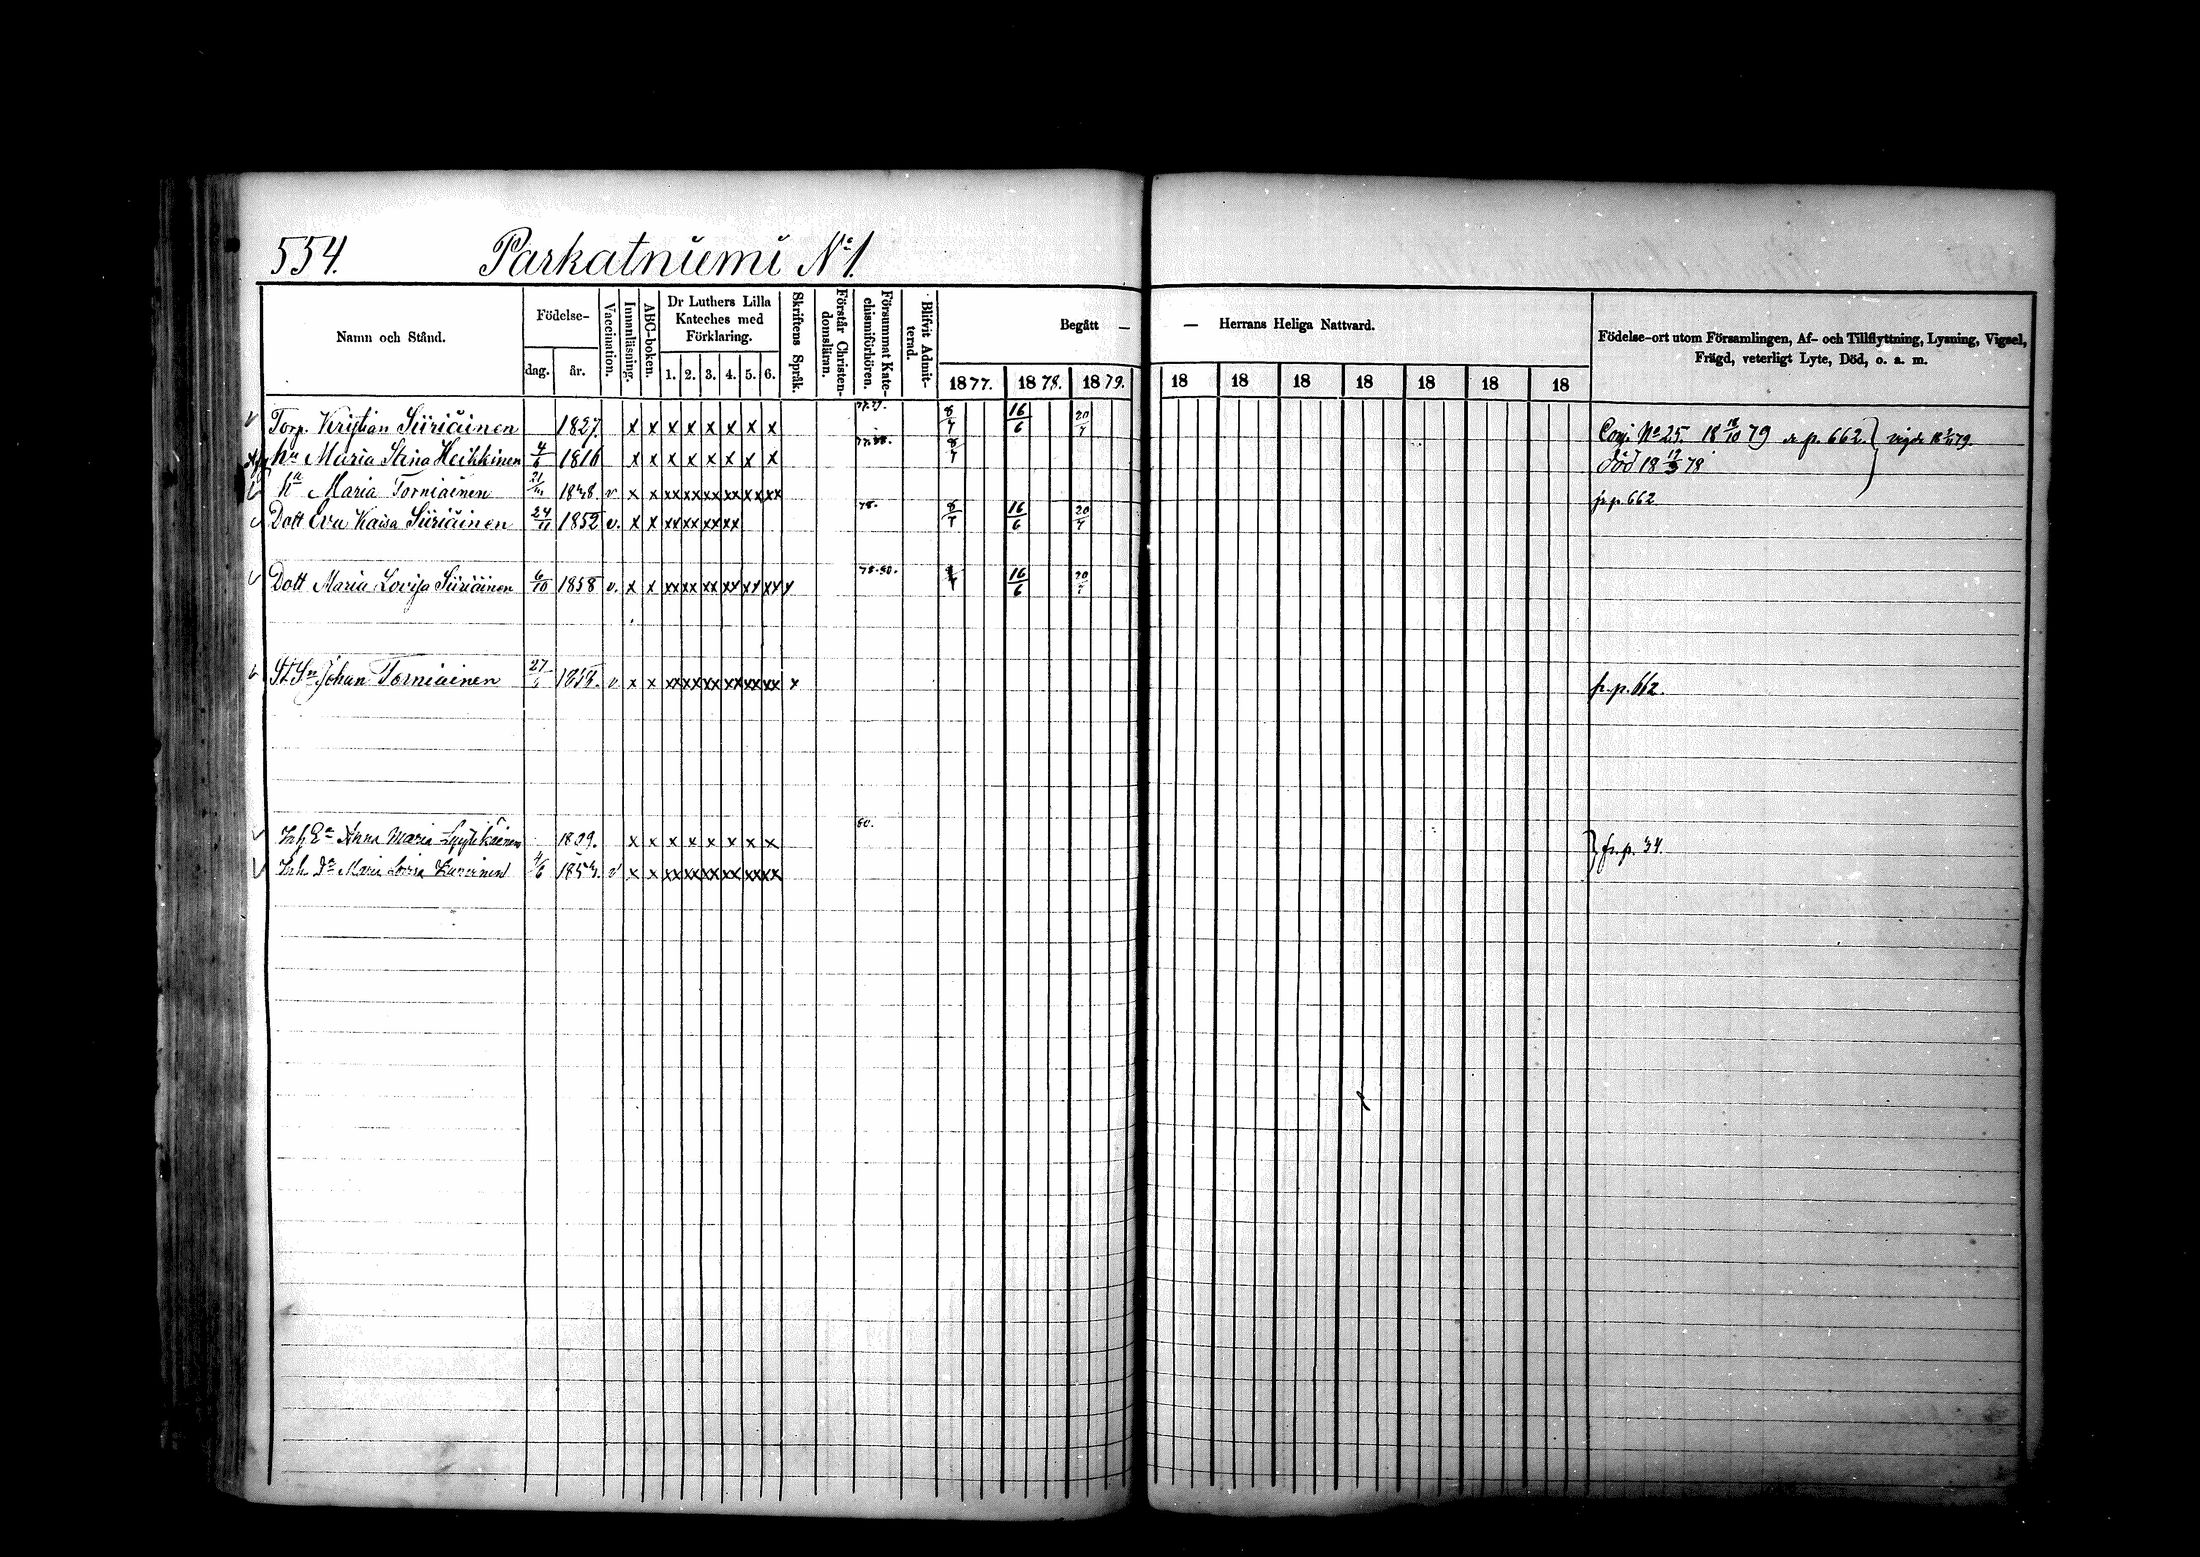 554. Parkatniemi No 1.
Namn och Stånd. Födelse- dag. år. Vaccination. Innanläsning. ABC-boken. Dr Luthers Lilla Kateches med Förklaring. 1. 2. 3. 4. 5. 6. Skriftens Språk. Förstår Christendomsläran. Försummat Katechismiförhören. Blifvit Admitterad. Begått — — Herrans Heliga Nattvard. Födelse-ort utom Församlingen, Af- och Tillflyttning, Lysning, Vigsel,
Frägd, veterligt Lyte, Död, o. a. m.
1877. 1878. 1879. 18 18 18 18 18 18 18
Torp. Kristian Siiriäinen 1827. x x x x x x x x 8/7 16/6 20/7 No 25. 18 18/10 79 p. 662.
hu Maria Stina Heikkinen 4/6 1816 x x x x x x x x 8/7 död 18 78
Maria Torniainen v x x xx xx xx xx xx xx fr p. 662
Dott Eva Kaisa Siiriäinen 24/11 1852 v. x x xx xx xx xx 78. 8/7 16/6 20/7
Dott Maria Lovisa Siiriäinen 6/10 1858 v. x x xx xx xx xx xx xx x 78.80. 16/6 20/7
Johan Torniainen v x x xx xx xx xx xx xx x fr. p. 662.
Inh. Anna Maria 1809. x x x x x x x x 80. fr. p. 34.
Inh. Maria Lovisa 4/6 v x x xx xx xx xx xx xx